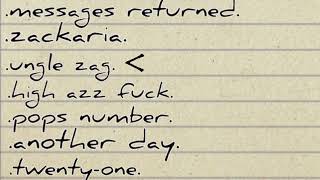 .messages returned.
.zackaria.
.ungle zag. <
.high azz fuck.
.pops number.
.another day.
.twenty-one.